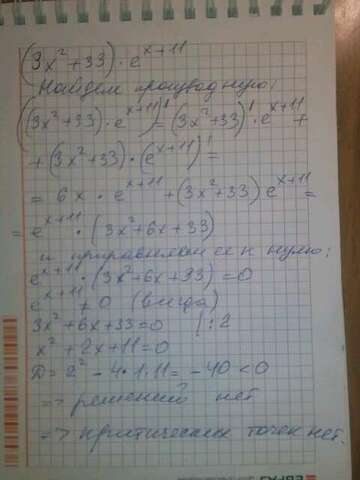 (3x²+33)·e^(x+11)
Найдём производную:
((3x²+33)·e^(x+11))' = (3x²+33)'·e^(x+11) +
+ (3x²+33)·(e^(x+11))' =
= 6x·e^(x+11) + (3x²+33)e^(x+11) =
= e^(x+11)·(3x²+6x+33)
и приравняем её к нулю:
e^(x+11)·(3x²+6x+33)=0
e^(x+11) ≠ 0 (всегда)
3x²+6x+33=0 | :2
x²+2x+11=0
D = 2² - 4·1·11 = -40 < 0
=> решений нет
=> критических точек нет.